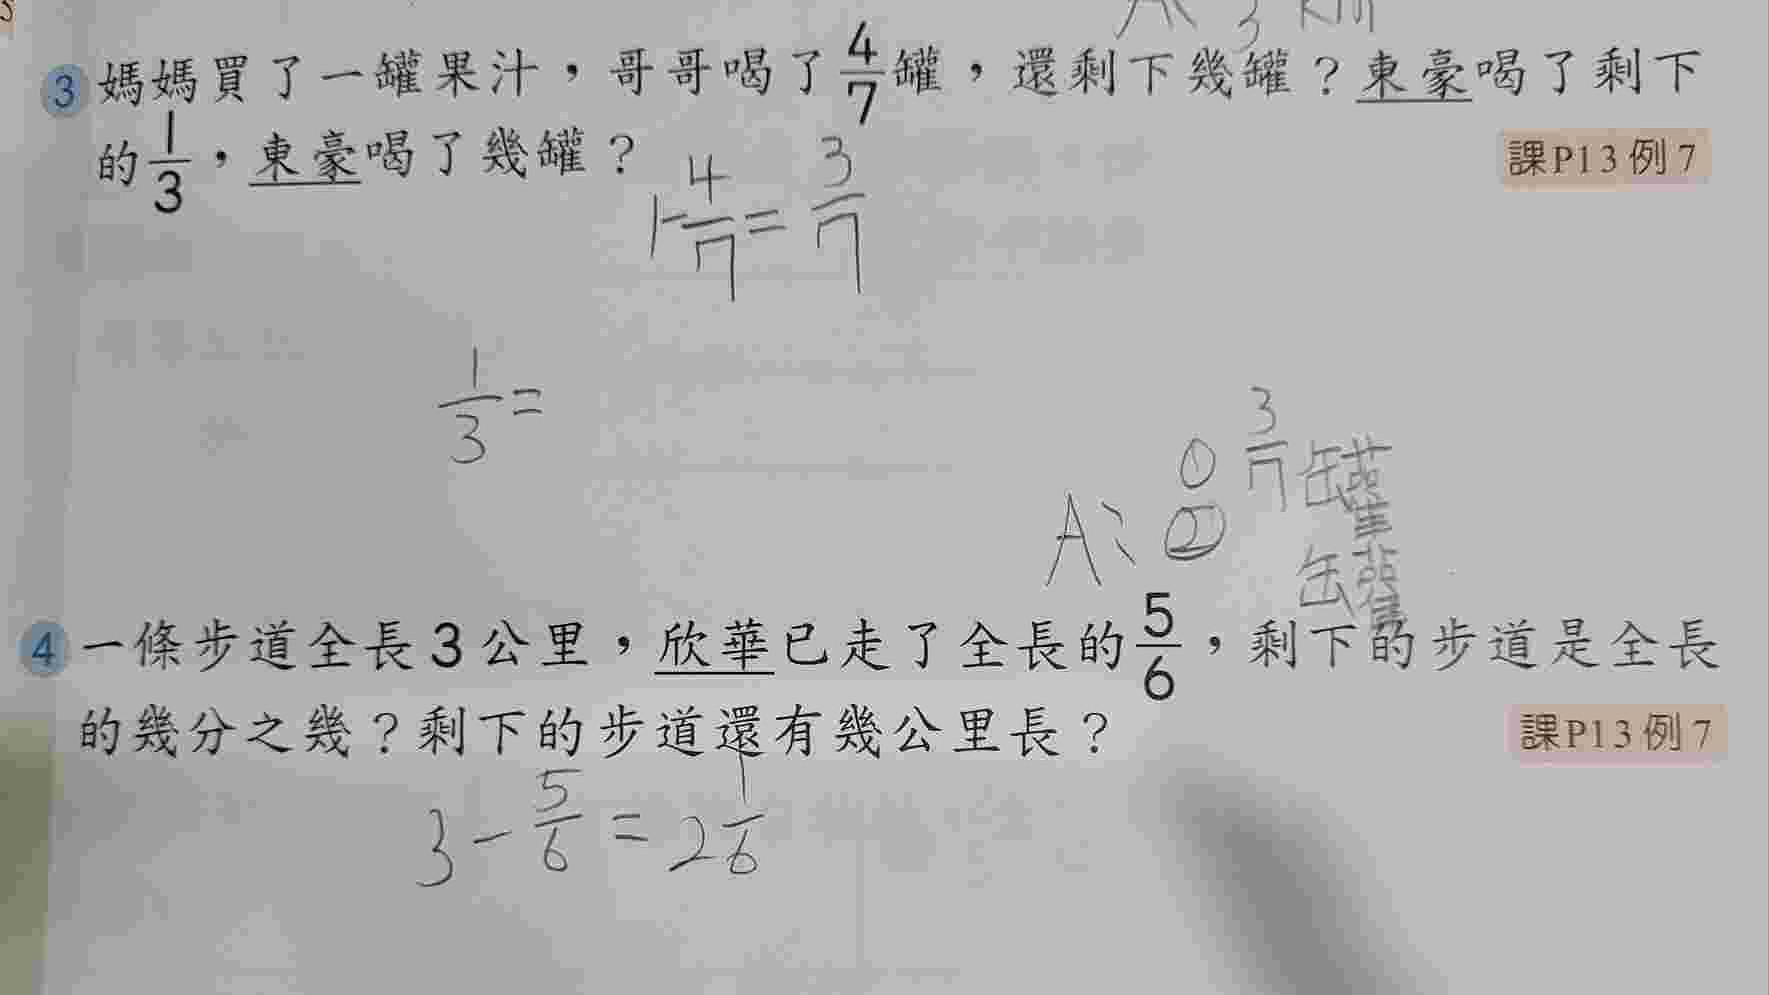 3 媽媽買了一罐果汁，哥哥喝了4/7罐，還剩下幾罐？東豪喝了剩下
的1/3，東豪喝了幾罐？
課P13例7
1-4/7=3/7
1/3=
A: ① 3/7罐
② 罐
4 一條步道全長3公里，欣華已走了全長的5/6，剩下的步道是全長
的幾分之幾？剩下的步道還有幾公里長？
課P13例7
3-5/6=2 1/6